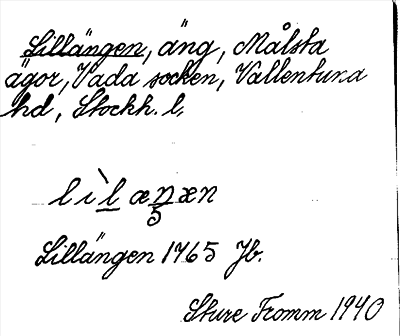 Lillängen, äng, Målsta
ägor, Vada socken, Vallentuna
hd, Stockh. l.
lìlæŋæn
Lillängen 1765 Jb.
Sture Fromm 1940